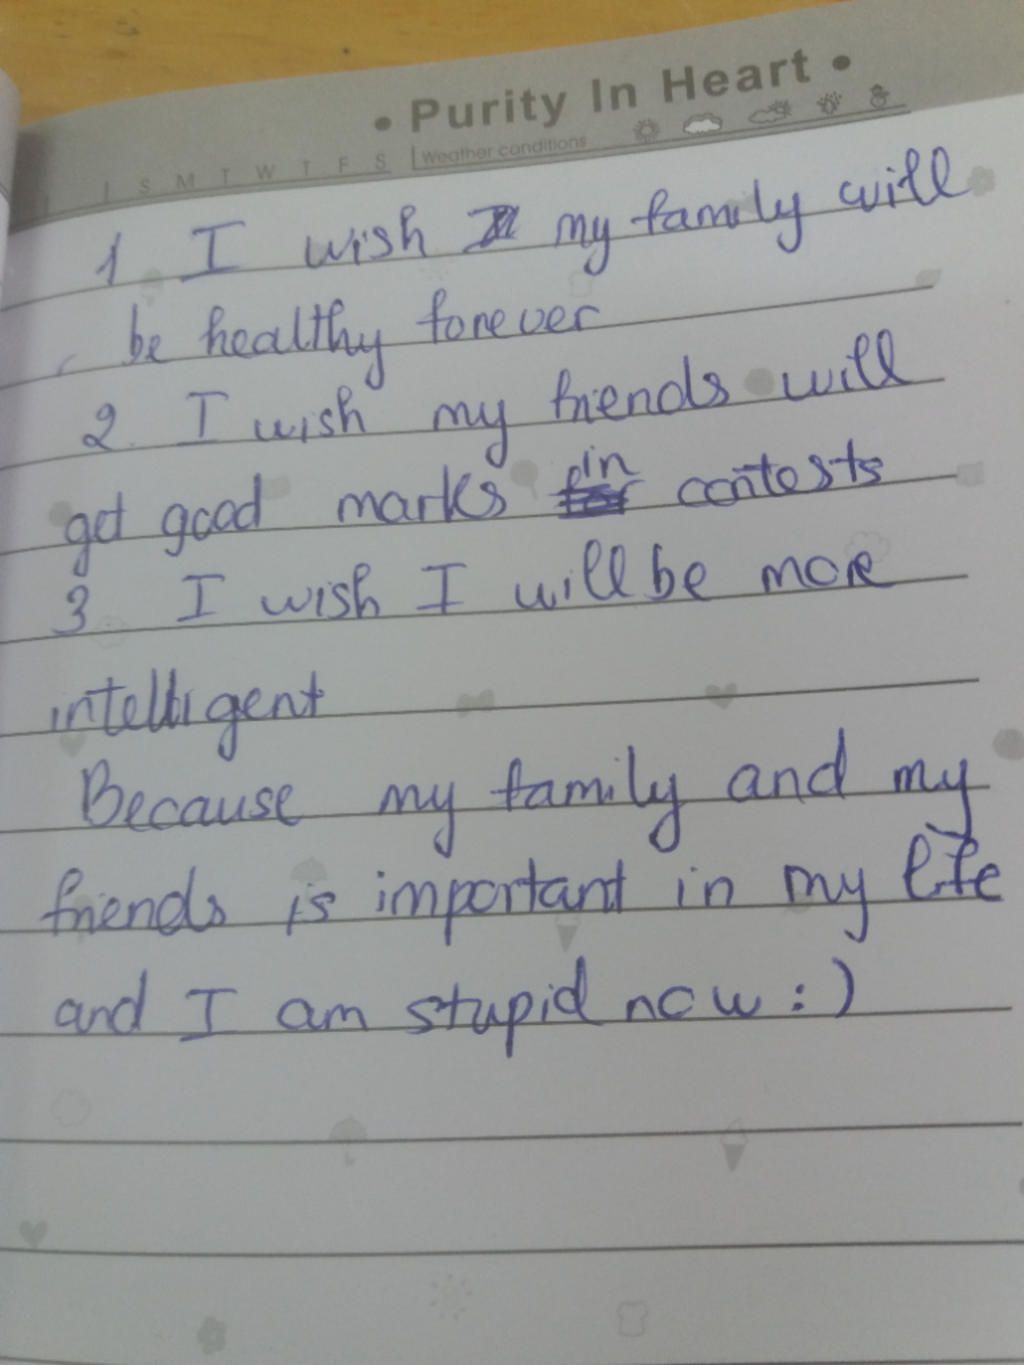 • Purity In Heart •
S M T W T F S Weather conditions
1 I wish my family will
be healthy forever
2. I wish my friends will
get good marks in contests
3 I wish I will be more
intelligent
Because my family and my
friends is important in my life
and I am stupid now :)